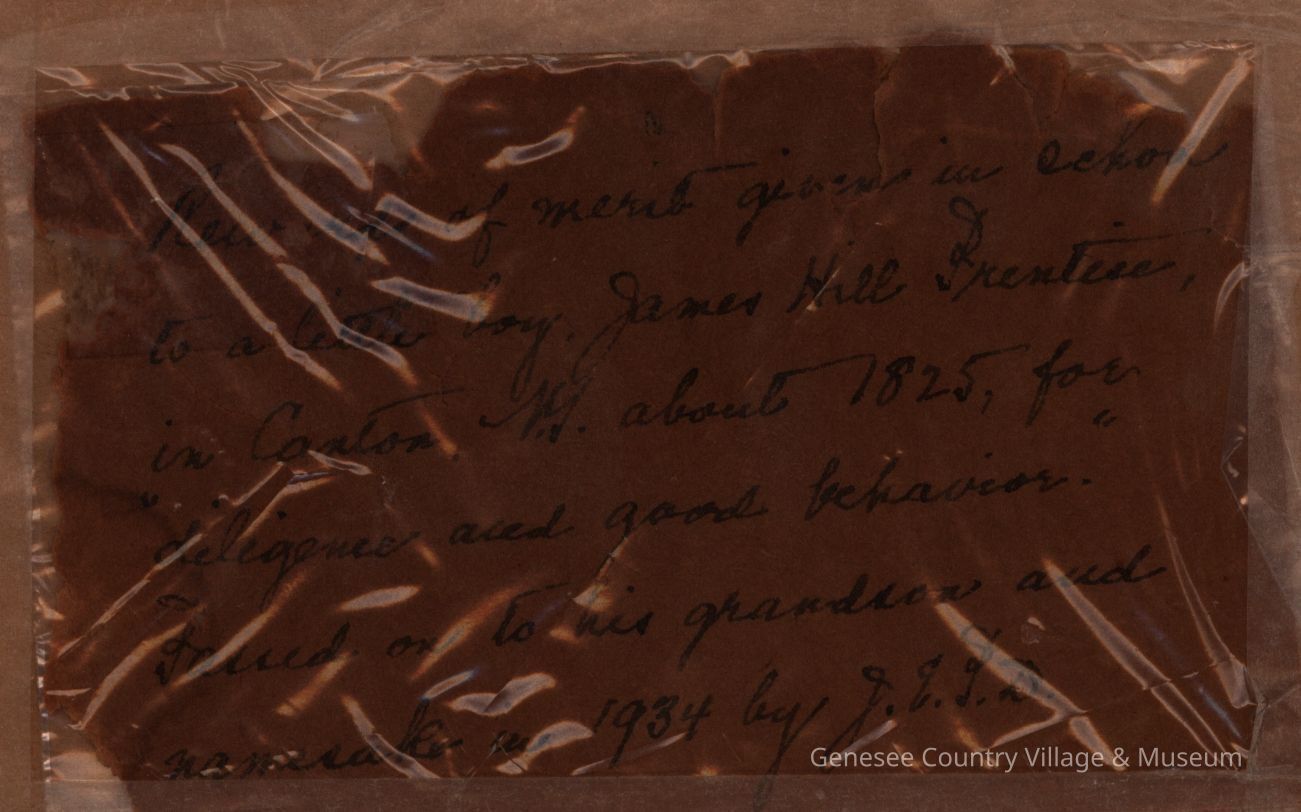 Reward of merit given in school
to a little boy, James Hill Prentice,
in Canton, N.Y. about 1825, for
"diligence and good behavior."
Passed on to his grandson and
namesake in 1934 by
Genesee Country Village & Museum